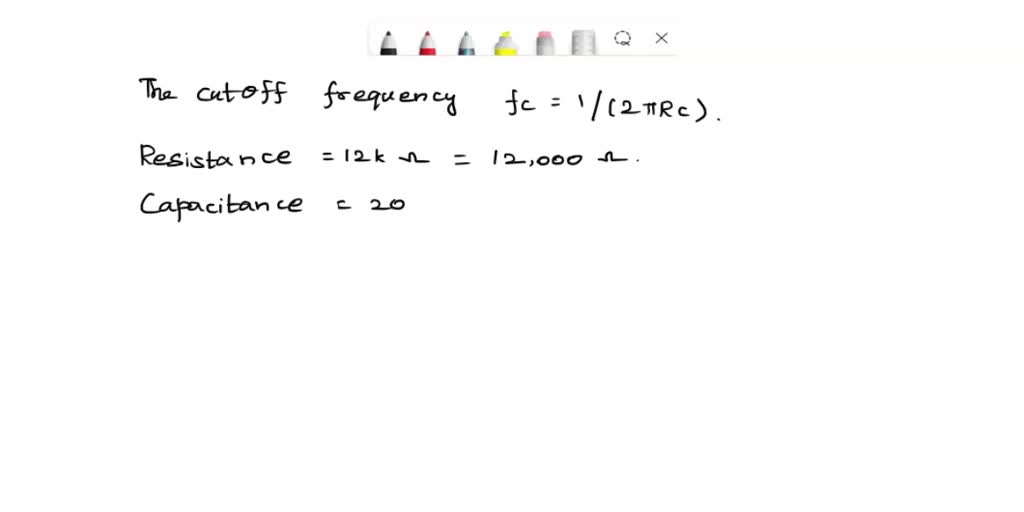 The cutoff frequency fc = 1/(2πRC).
Resistance = 12k Ω = 12,000 Ω.
Capacitance = 20